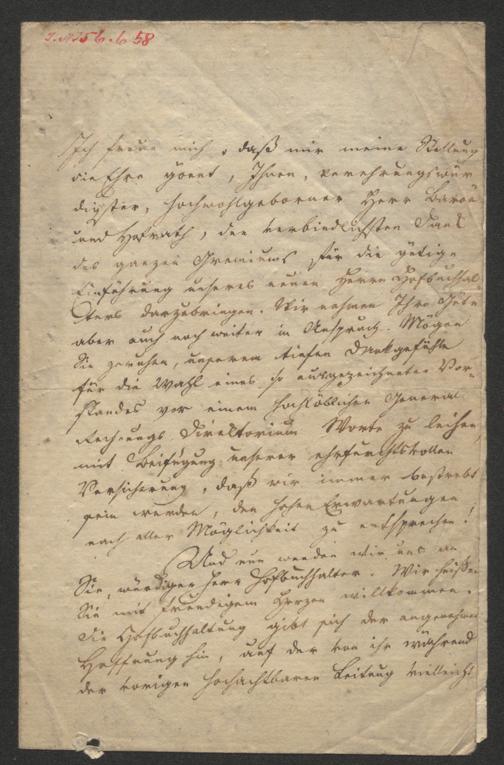 J.N. 56.658
Ich freue mich, daß mir meine Stellung
die Ehre gönnt, Ihnen, verehrungswür
digster, hochwohlgeborner Herr Baron
und Hofrath, den verbindlichsten Dank
des ganzen Gremiums für die gütige
Einführung unseres neuen Herrn Hofbuchhal
ters darzubringen. Wir nehmen Ihre Güte
aber auch noch weiter in Anspruch. Mögen
Sie geruhen, unserem tiefen Dankgefühle
für die Wahl eines so ausgezeichneten Vor-
standes vor einem hochlöblichen General
Rechnungs Direktorium Worte zu leihen,
mit Beifügung unserer ehrfurchtsvollen
Versicherung, daß wir immer bestrebt
sein werden, den hohen Erwartungen
nach aller Möglichkeit zu entsprechen!
Und nun wenden wir uns an
Sie, würdiger Herr Hofbuchhalter. Wir heißen
Sie mit freudigem Herzen willkommen.
Die Hofbuchhaltung gibt sich der angenehmen
Hoffnung hin, auf der von ihr während
der vorigen hochachtbaren Leitung vielleicht